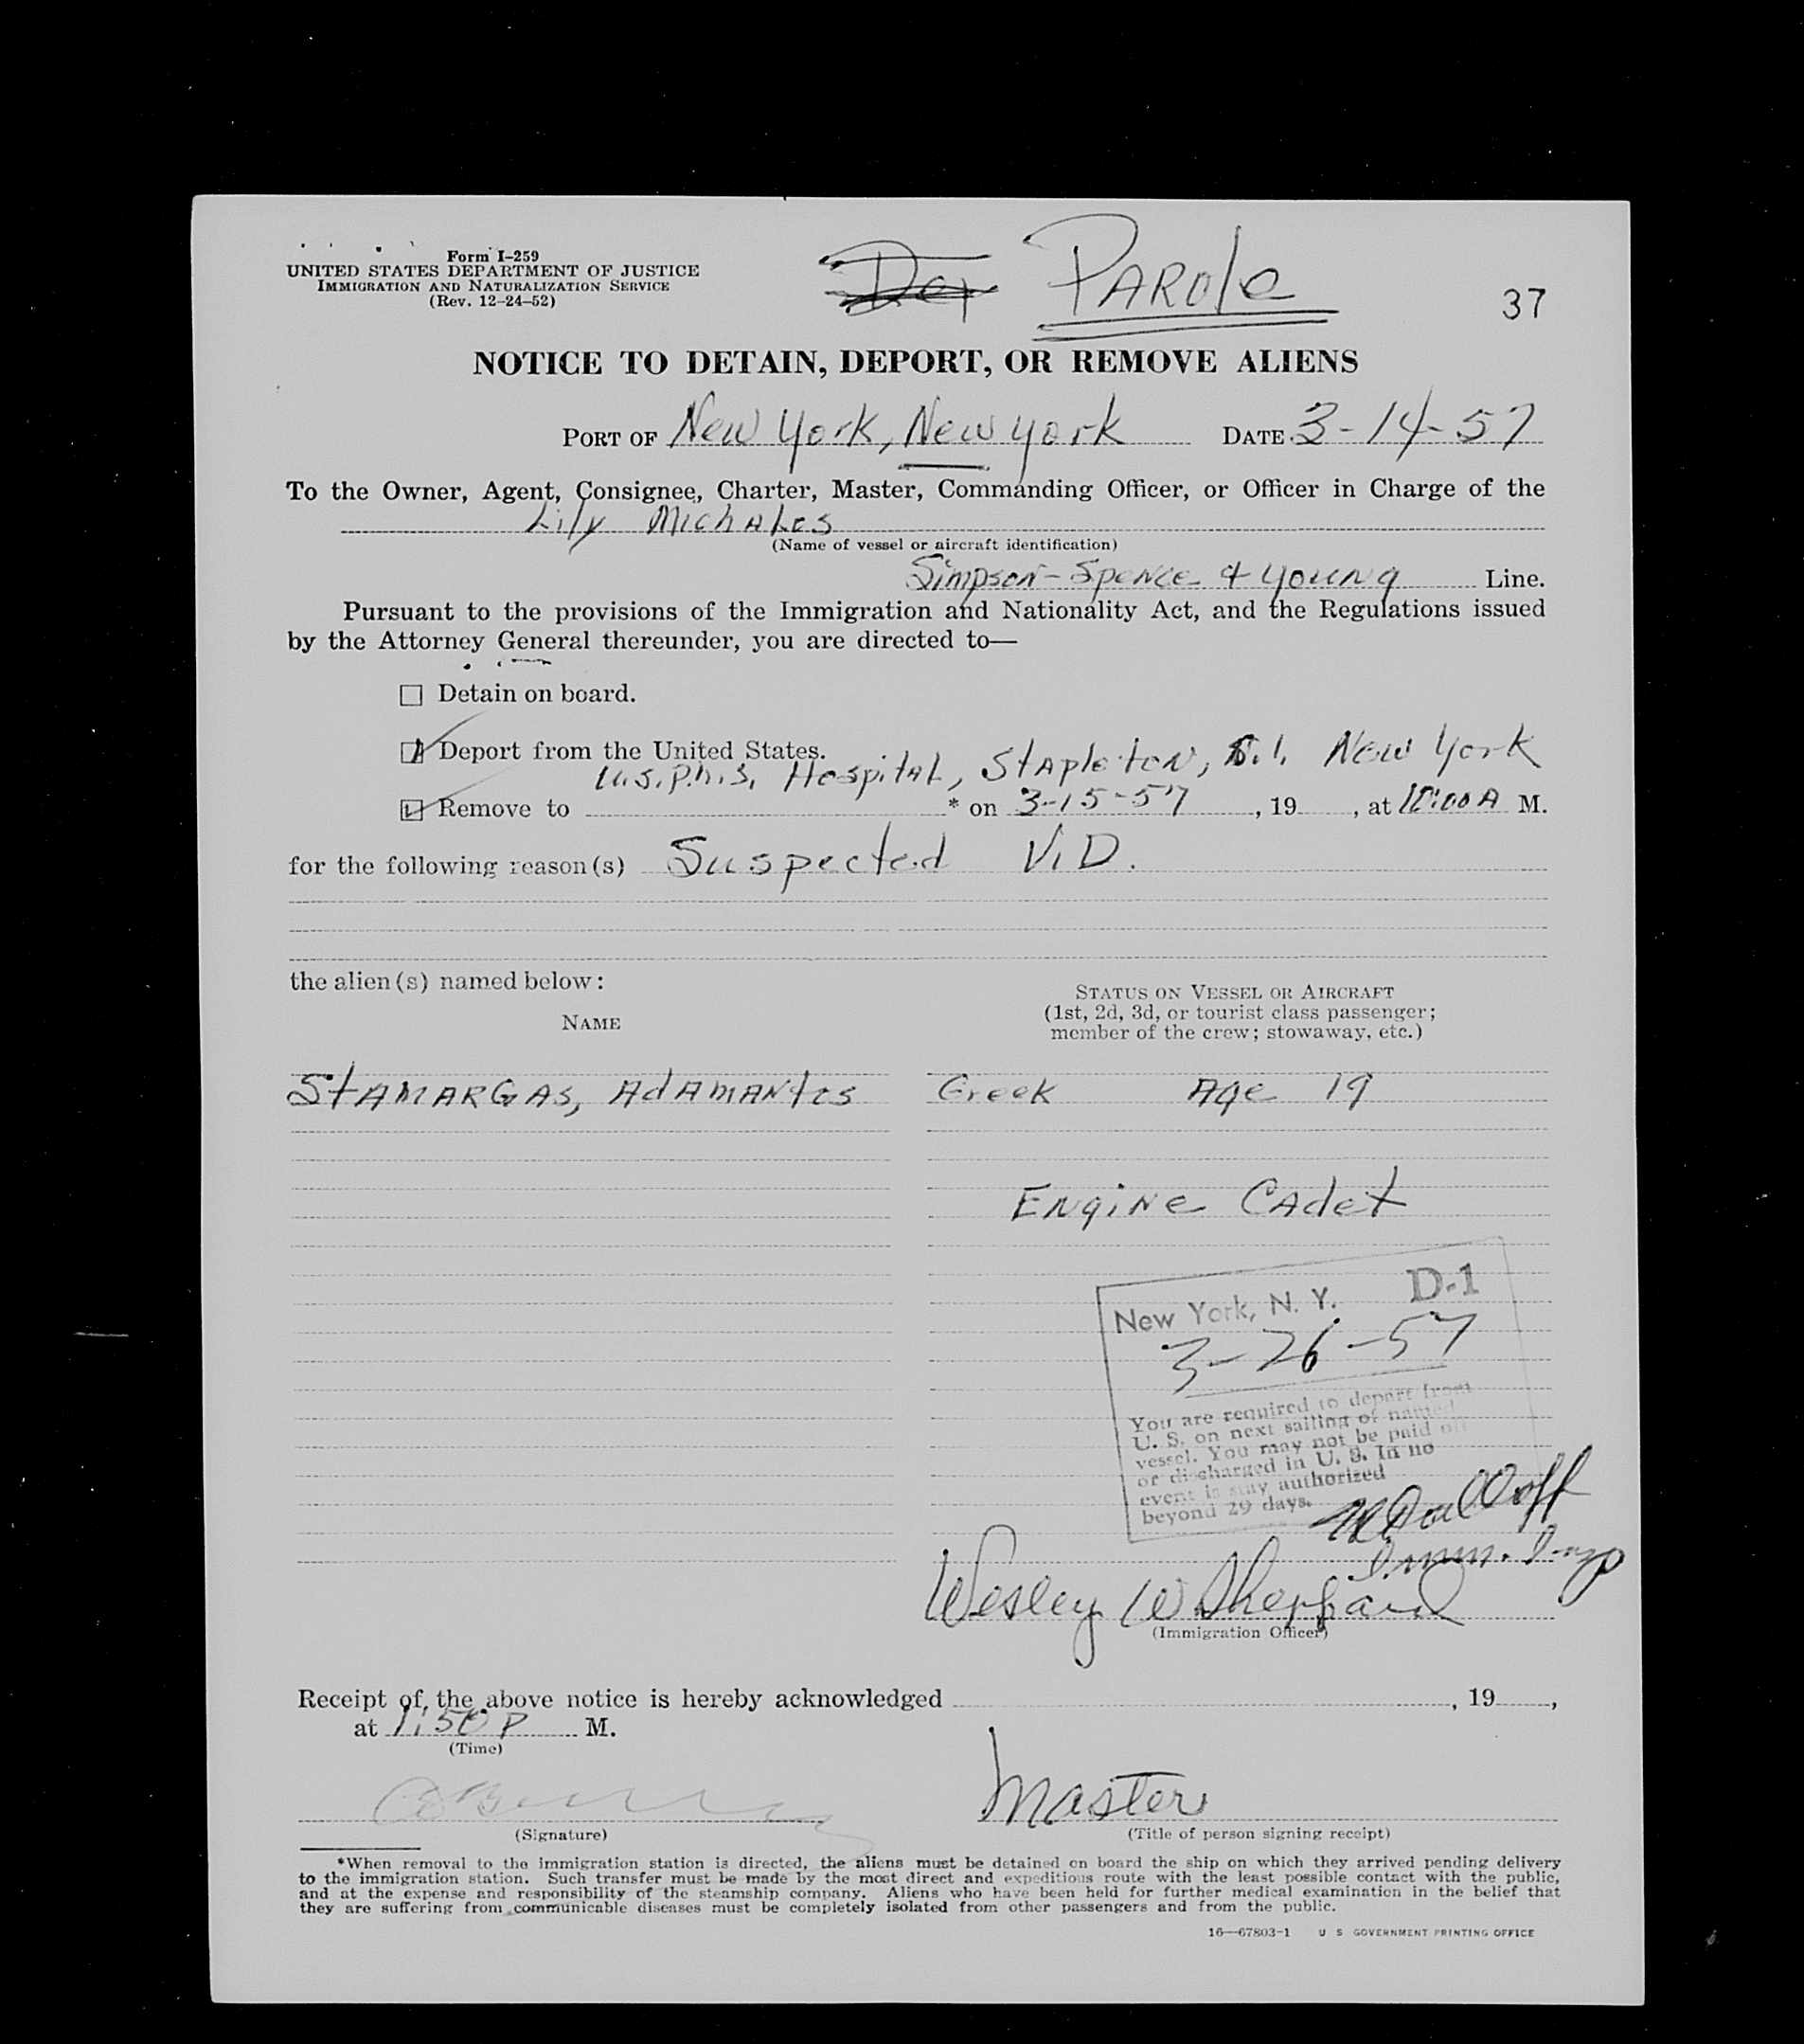 Form I-259
UNITED STATES DEPARTMENT OF JUSTICE
IMMIGRATION AND NATURALIZATION SERVICE
(Rev. 12-24-52)
PAROLE
37
NOTICE TO DETAIN, DEPORT, OR REMOVE ALIENS
PORT OF New York, New York DATE 3-14-57
To the Owner, Agent, Consignee, Charter, Master, Commanding Officer, or Officer in Charge of the
Lily Michalos
(Name of vessel or aircraft identification)
Simpson-Spence & Young Line.
Pursuant to the provisions of the Immigration and Nationality Act, and the Regulations issued
by the Attorney General thereunder, you are directed to—
Detain on board.
Deport from the United States.
U.S.P.H.S. Hospital, Stapleton, S.I. New York
Remove to * on 3-15-57, 19 , at 10:00 A M.
for the following reason(s) Suspected V.D.
the alien(s) named below:
NAME
STATUS ON VESSEL OR AIRCRAFT
(1st, 2d, 3d, or tourist class passenger;
member of the crew; stowaway, etc.)
STAMARGAS, ADAMANTIOS Greek Age 19
Engine Cadet
New York, N. Y. D-1
3-26-57
You are required to depart from
U. S. on next sailing of named
vessel. You may not be paid off
or discharged in U. S. In no
event is stay authorized
beyond 29 days.
Imm. Insp
Wesley W Sheppard
(Immigration Officer)
Receipt of the above notice is hereby acknowledged , 19 ,
at 1:50 P M.
(Time)
Master
(Signature)
(Title of person signing receipt)
*When removal to the immigration station is directed, the aliens must be detained on board the ship on which they arrived pending delivery
to the immigration station. Such transfer must be made by the most direct and expeditious route with the least possible contact with the public,
and at the expense and responsibility of the steamship company. Aliens who have been held for further medical examination in the belief that
they are suffering from communicable diseases must be completely isolated from other passengers and from the public.
16—67803-1 U S GOVERNMENT PRINTING OFFICE